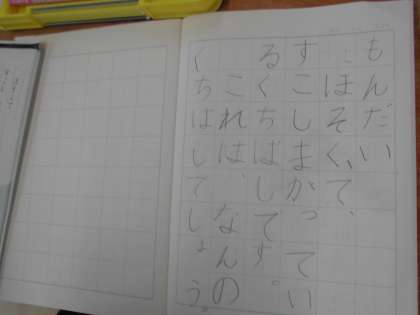 もんだい
ほそく、て、
すこしまがってい
るくちばしです。
これは、なんの
くちばしでしょう。